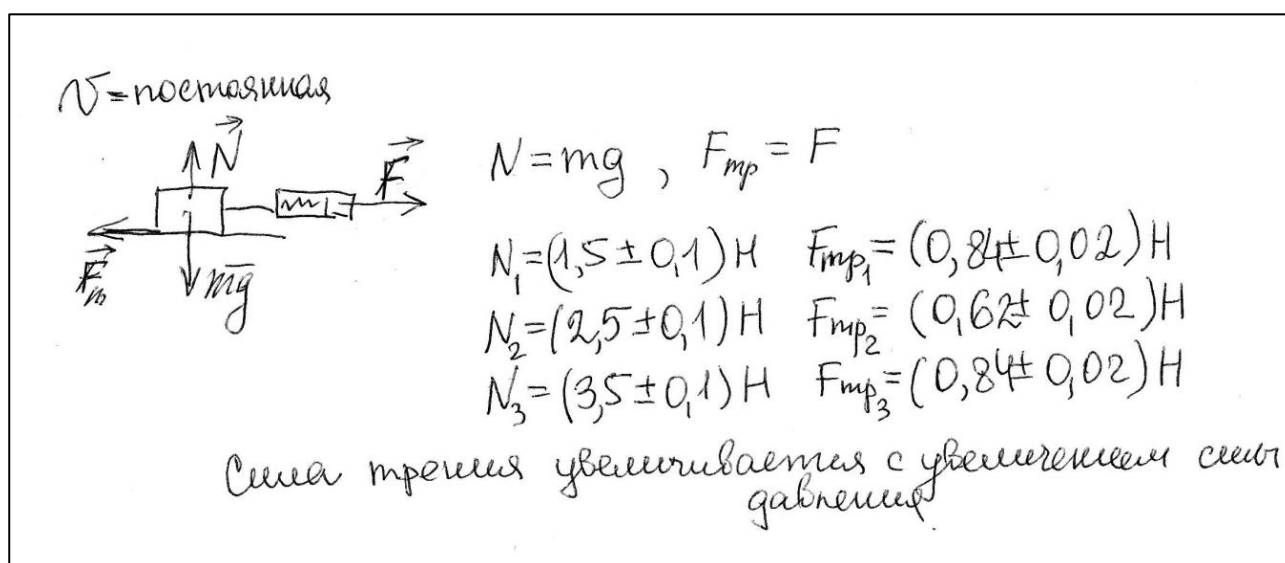 v = постоянная
N⃗
F⃗
F⃗т
mg⃗
N = mg , Fтр = F
N₁ = (1,5 ± 0,1) Н Fтр₁ = (0,84 ± 0,02) Н
N₂ = (2,5 ± 0,1) Н Fтр₂ = (0,62 ± 0,02) Н
N₃ = (3,5 ± 0,1) Н Fтр₃ = (0,84 ± 0,02) Н
Сила трения увеличивается с увеличением силы
давления